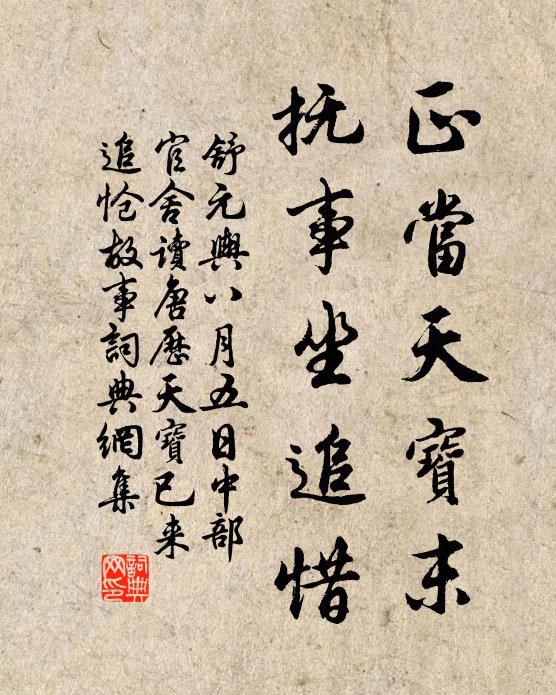 正當天寶末
抚事坐追惜
舒元輿八月五日中部
官舍讀唐歷天寶已来
追怆故事詞典網集
詞典网印